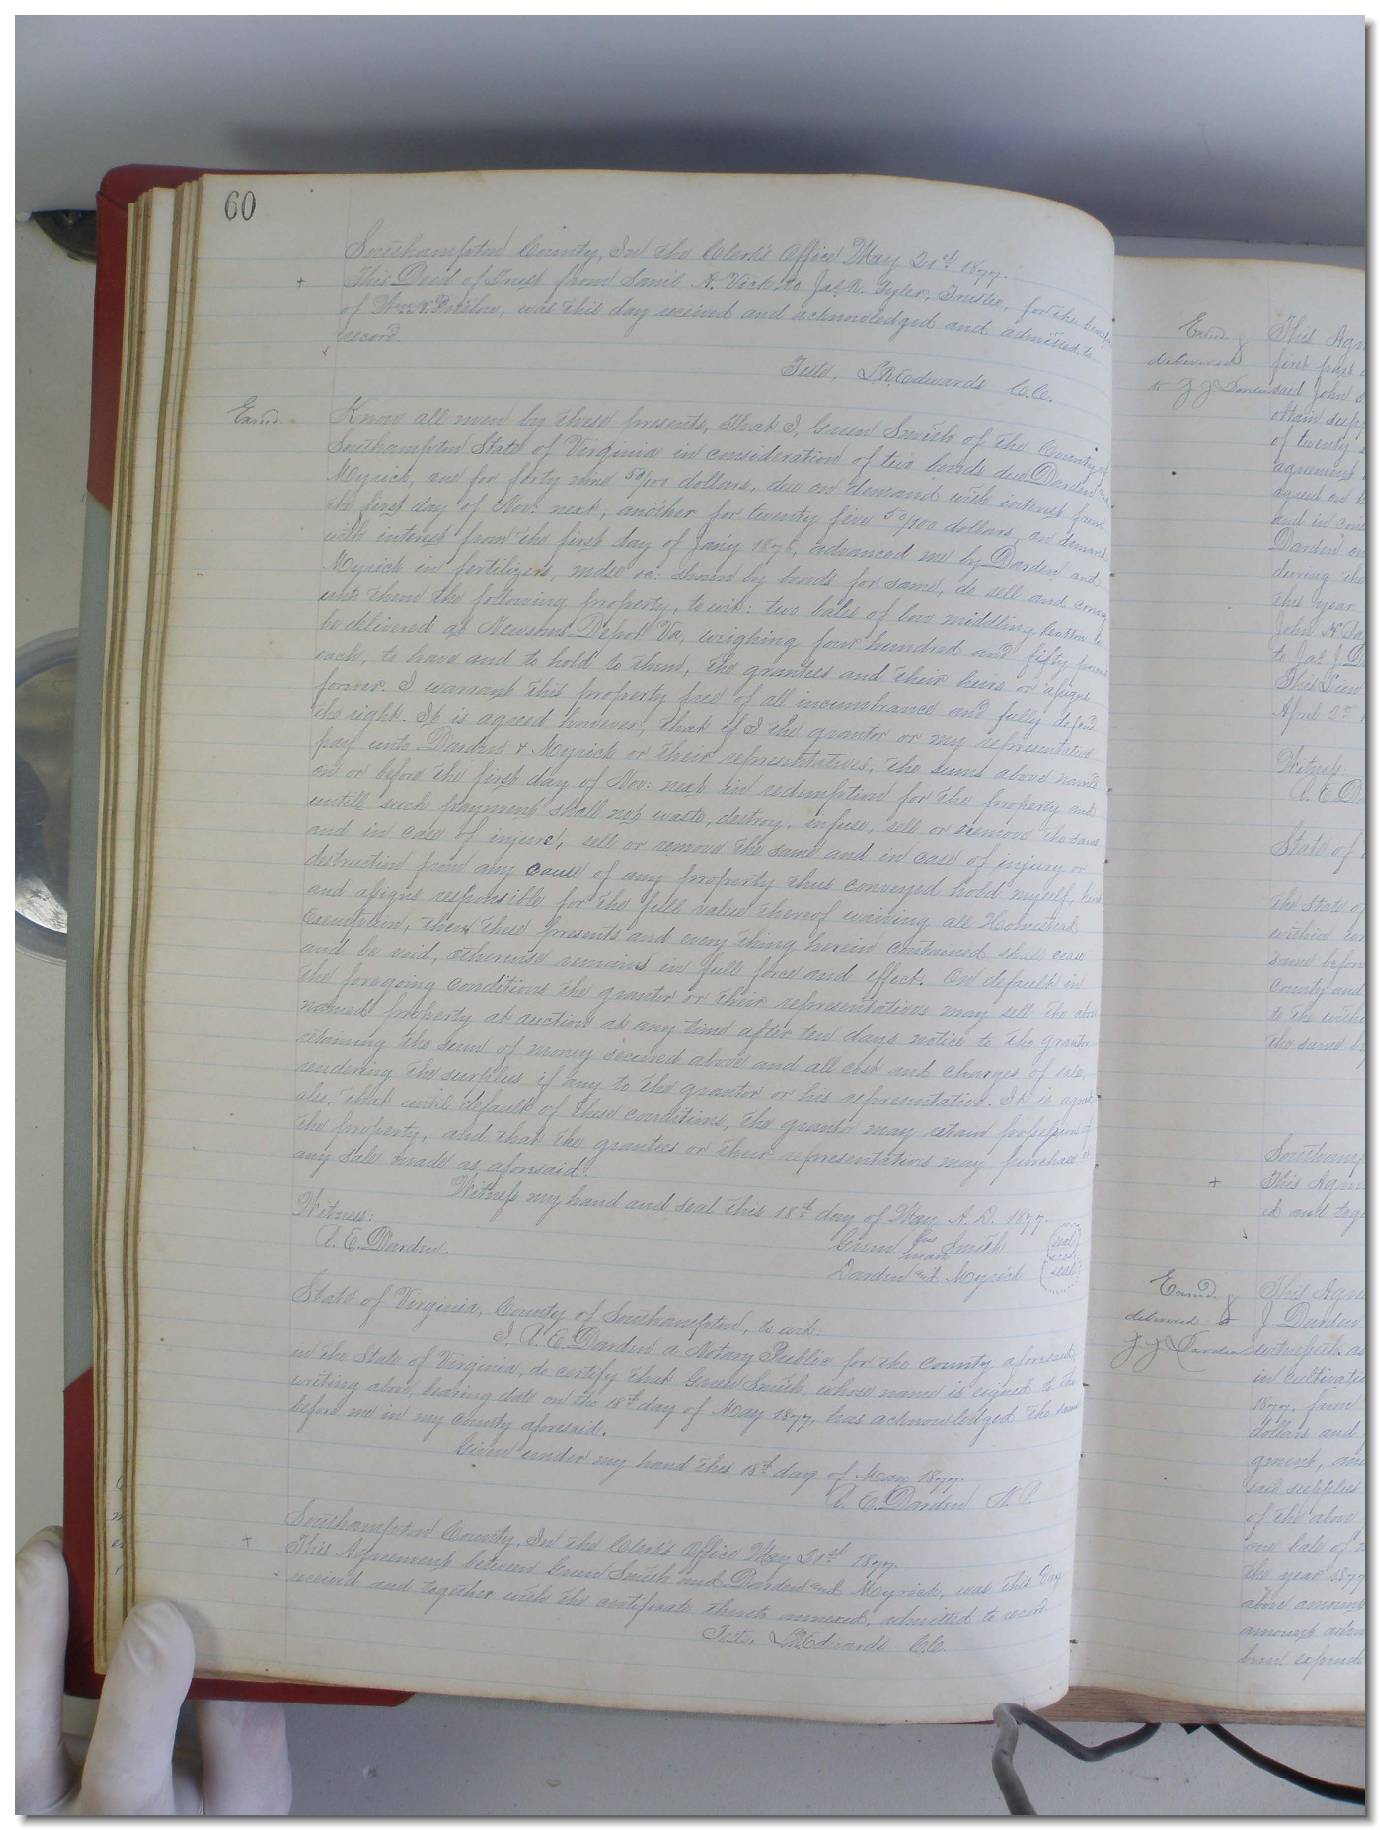 60
Southampton County, In the Clerk's Office May 21st 1877.
This Deed of Trust from Saml A. Vick to Jas. N. Tyler, Trustee, for the benefit
of Wm. N. was this day received and acknowledged and admitted to
record.
Teste, L R Edwards C.C.
Exmd.
Know all men by these presents, that I, Green Smith of the County of
Southampton State of Virginia in consideration of two bonds due Darden and
Myrick, one for forty nine 50/100 dollars, due on demand with interest from
the first day of Nov: next, another for twenty five 50/100 dollars, on demand
with interest from the first day of Jan'y 1878, advanced me by Darden and
Myrick in fertilizers, mdse &c: shown by bonds for same, do sell and convey
unto them the following property, to wit: two bales of low middling cotton to
be delivered at Newsoms Depot Va, weighing four hundred and fifty pounds
each, to have and to hold to them, the grantees and their heirs or assigns
forever. I warrant this property free of all incumbrance and fully defend
the right. It is agreed however, that if I the grantor or my representative
pay unto Darden & Myrick or their representatives, the sums above named
on or before the first day of Nov: next in redemption for the property and
untill such payment shall not waste, destroy, injure, sell or remove the same
and in case of injure, sell or remove the same and in case of injury or
destruction from any cause of any property thus conveyed hold myself, heirs
and assigns responsible for the full value thereof waiving all Homestead
Exemption, then these presents and every thing herein contained shall cease
and be void, otherwise remains in full force and effect. On default in
the foregoing conditions the grantor or their representatives may sell the above
named property at auction at any time after ten days notice to the grantor
retaining the sum of money secured above and all cost and charges of sale,
rendering the surplus if any to the grantor or his representative. It is agreed
also, that until default of these conditions, the grantor may retain possession of
the property, and that the grantees or their representatives may purchase at
any sale made as aforesaid.
Witness my hand and seal this 18th day of May A.D. 1877.
Witness:
A. E. Darden.
Green his mark Smith (seal)
Darden and Myrick (seal)
State of Virginia, County of Southampton, to wit:
I, A. E. Darden a Notary Public for the county aforesaid
in the State of Virginia, do certify that Green Smith whose name is signed to the
writing above, bearing date on the 18th day of May 1877, has acknowledged the same
before me in my county aforesaid.
Given under my hand this 18th day of May 1877.
A. E. Darden N.P.
Southampton County, In the Clerk's Office May 21st 1877.
This Agreement between Green Smith and Darden and Myrick, was this day
received and together with the certificate thereto annexed, admitted to record
Teste, L R Edwards C.C.
Exmd &
delivered
to J J Darden
This Agre
first part
said John
obtain supp
of twenty
agreement
agent on
and in cons
Darden an
during the
this year
John N
to Jas J. D
This Lien
April 2nd
Witness
A. E. Da
State of
the State of
within
same before
county and
to the withi
the same
Southamp
This Agre
ed and toge
Exmd. &
delivered to
J J Darden
This Agre
J Darden
witnesseth
in cultivati
1877. from
dollars and
grment, and
said supplies
of the above
one bale of
the year 1877
above amount
amount adva
been expende